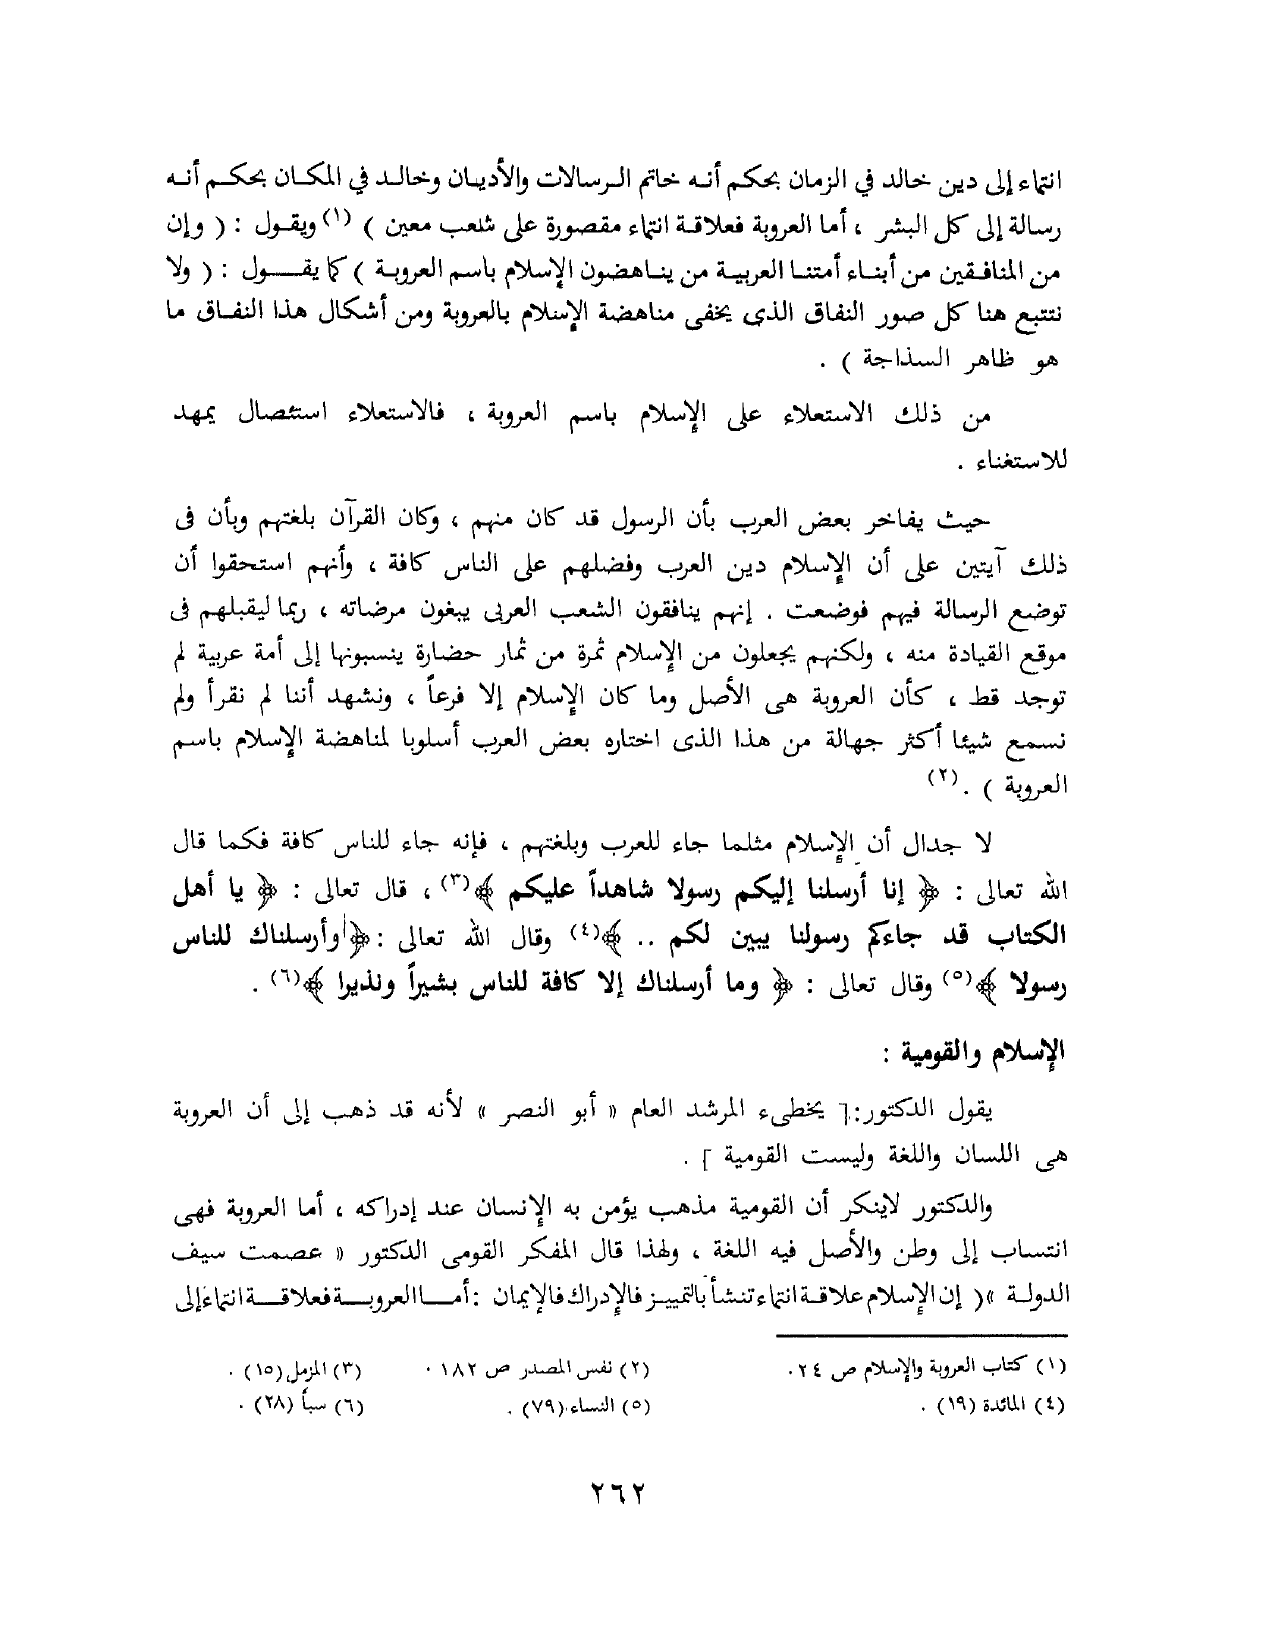 انتماء إلى دين خالد في الزمان بحكم أنه خاتم الرسالات والأديان وخالد في المكان بحكم أنه
رسالة إلى كل البشر ، أما العروبة فعلاقة انتماء مقصورة على شعب معين ) (١) ويقول : ( وإن
من المنافقين من أبناء أمتنا العربية من يناهضون الإسلام باسم العروبة ) كما يقول : ( ولا
نتتبع هنا كل صور النفاق الذى يخفى مناهضة الإسلام بالعروبة ومن أشكال هذا النفاق ما
هو ظاهر السذاجة ) .
من ذلك الاستعلاء على الإسلام باسم العروبة ، فالاستعلاء استئصال يمهد
للاستغناء .
حيث يفاخر بعض العرب بأن الرسول قد كان منهم ، وكان القرآن بلغتهم وبأن فى
ذلك آيتين على أن الإسلام دين العرب وفضلهم على الناس كافة ، وأنهم استحقوا أن
توضع الرسالة فيهم فوضعت . إنهم ينافقون الشعب العربى يبغون مرضاته ، ربما ليقبلهم فى
موقع القيادة منه ، ولكنهم يجعلون من الإسلام ثمرة من ثمار حضارة ينسبونها إلى أمة عربية لم
توجد قط ، كأن العروبة هى الأصل وما كان الإسلام إلا فرعاً ، ونشهد أننا لم نقرأ ولم
نسمع شيئا أكثر جهالة من هذا الذى اختاره بعض العرب أسلوبا لمناهضة الإسلام باسم
العروبة ) . (٢)
لا جدال أن الإسلام مثلما جاء للعرب وبلغتهم ، فإنه جاء للناس كافة فكما قال
الله تعالى : ﴿ إنا أرسلنا إليكم رسولا شاهداً عليكم ﴾(٣) ، قال تعالى : ﴿ يا أهل
الكتاب قد جاءكم رسولنا يبين لكم .. ﴾(٤) وقال الله تعالى : ﴿ وأرسلناك للناس
رسولا ﴾(٥) وقال تعالى : ﴿ وما أرسلناك إلا كافة للناس بشيراً ونذيرا ﴾(٦) .
الإسلام والقومية :
يقول الدكتور: [ يخطىء المرشد العام « أبو النصر » لأنه قد ذهب إلى أن العروبة
هى اللسان واللغة وليست القومية ] .
والدكتور لاينكر أن القومية مذهب يؤمن به الإنسان عند إدراكه ، أما العروبة فهى
انتساب إلى وطن والأصل فيه اللغة ، ولهذا قال المفكر القومى الدكتور « عصمت سيف
الدولة »( إن الإسلام علاقة انتماء تنشأ بالتمييز فالإدراك فالإيمان : أما العروبة فعلاقة انتماء إلى
(١) كتاب العروبة والإسلام ص ٢٤. (٢) نفس المصدر ص ١٨٢ . (٣) المزمل (١٥) .
(٤) المائدة (١٩) . (٥) النساء (٧٩) . (٦) سبأ (٢٨) .
٢٦٢